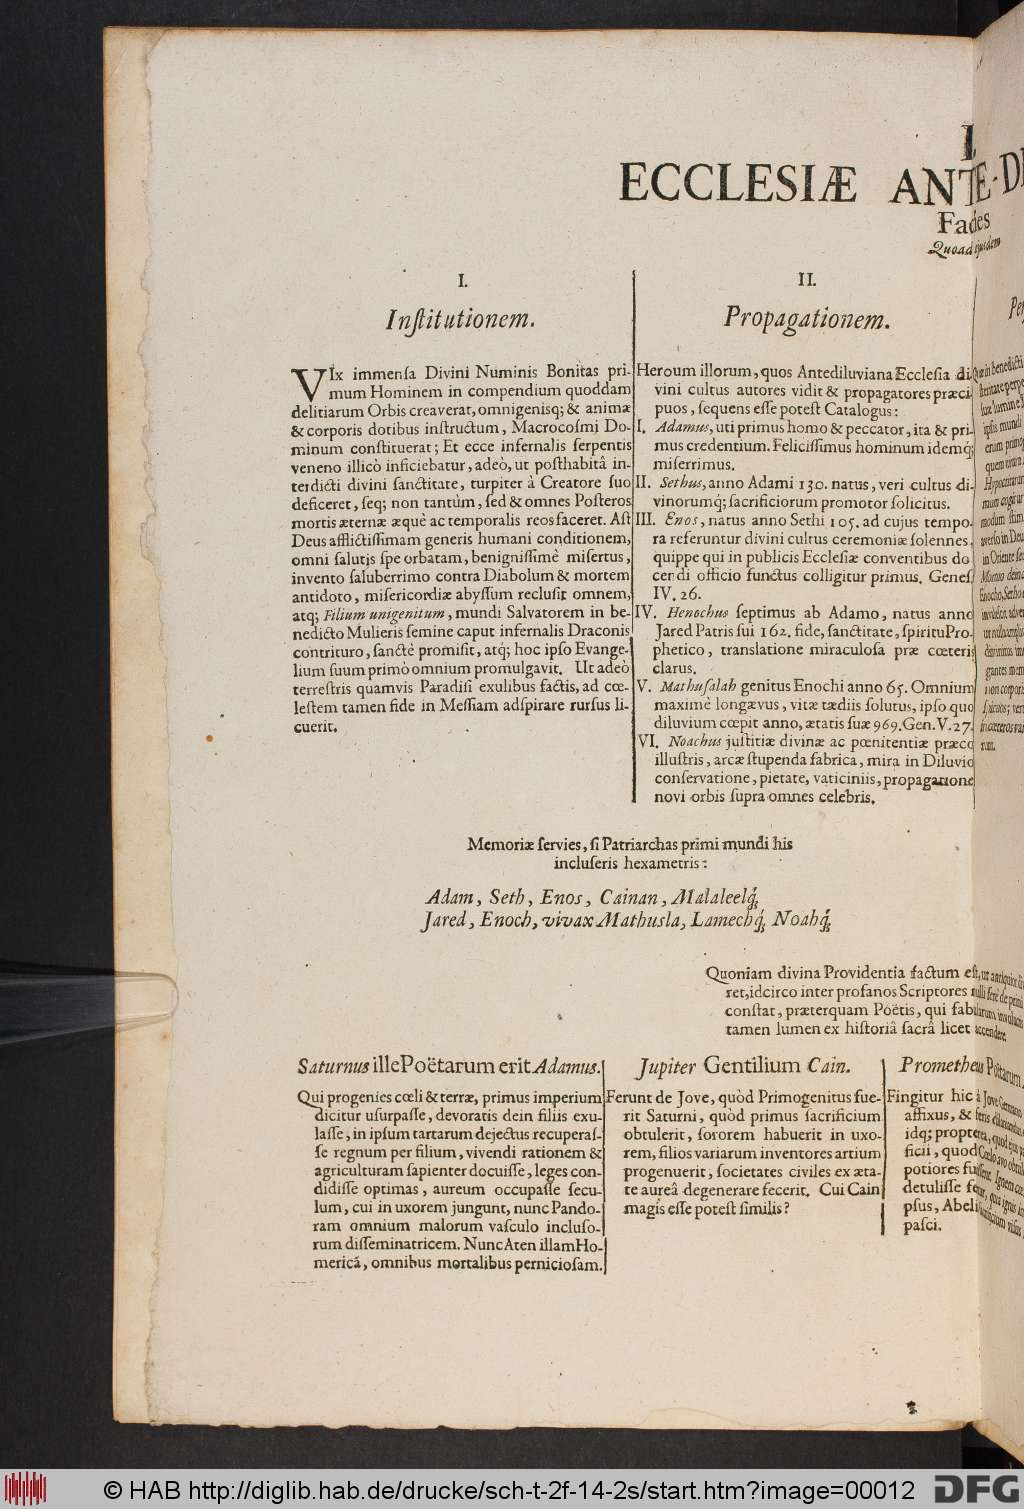 I.
ECCLESIÆ ANTE-DI
Facies
Quoad ejusdem
I.
Inſtitutionem.
VIx immenſa Divini Numinis Bonitas pri-
mum Hominem in compendium quoddam
delitiarum Orbis creaverat, omnigenisq; & animæ
& corporis dotibus inſtructum, Macrocoſmi Do-
minum conſtituerat; Et ecce infernalis ſerpentis
veneno illicò inficiebatur, adeò, ut poſthabitâ in-
terdicti divini ſanctitate, turpiter à Creatore ſuo
deficeret, ſeq; non tantùm, ſed & omnes Poſteros
mortis æternæ æquè ac temporalis reos faceret. Aſt
Deus afflictiſſimam generis humani conditionem,
omni ſalutis ſpe orbatam, benigniſſimè miſertus,
invento ſaluberrimo contra Diabolum & mortem
antidoto, miſericordiæ abyſſum recluſit omnem,
atq; Filium unigenitum, mundi Salvatorem in be-
nedicto Mulieris ſemine caput infernalis Draconis
contrituro, ſanctè promiſit, atq; hoc ipſo Evange-
lium ſuum primò omnium promulgavit. Ut adeò
terreſtris quamvis Paradiſi exulibus factis, ad cœ-
leſtem tamen fide in Meſſiam adſpirare rurſus li-
cuerit.
II.
Propagationem.
Heroum illorum, quos Antediluviana Eccleſia di-
vini cultus autores vidit & propagatores præci-
puos, ſequens eſſe poteſt Catalogus:
I. Adamus, uti primus homo & peccator, ita & pri-
mus credentium. Feliciſſimus hominum idemq;
miſerrimus.
II. Sethus, anno Adami 130. natus, veri cultus di-
vinorumq; ſacrificiorum promotor ſolicitus.
III. Enos, natus anno Sethi 105. ad cujus tempo-
ra referuntur divini cultus ceremoniæ ſolennes,
quippe qui in publicis Eccleſiæ conventibus do
cendi officio functus colligitur primus. Geneſ.
IV. 26.
IV. Henochus ſeptimus ab Adamo, natus anno
Jared Patris ſui 162. fide, ſanctitate, ſpiritu Pro-
phetico, translatione miraculoſa præ cœteris
clarus.
V. Mathuſalah genitus Enochi anno 65. Omnium
maximè longævus, vitæ tædiis ſolutus, ipſo quo
diluvium cœpit anno, ætatis ſuæ 969. Gen. V. 27.
VI. Noachus juſtitiæ divinæ ac pœnitentiæ præco
illuſtris, arcæ ſtupenda fabrica, mira in Diluvio
conſervatione, pietate, vaticiniis, propagatione
novi orbis ſupra omnes celebris.
Memoriæ ſervies, ſi Patriarchas primi mundi his
incluſeris hexametris:
Adam, Seth, Enos, Cainan, Malaleelq́;
Jared, Enoch, vivax Mathusla, Lamechq́; Noahq́;
Quoniam divina Providentia factum eſt, ut antiquior
ret, idcirco inter profanos Scriptores nulli ferè de primi
conſtat, præterquam Poëtis, qui fabularum involucris
tamen lumen ex hiſtoriâ ſacrâ licet accendere.
Saturnus ille Poëtarum erit Adamus.
Qui progenies cœli & terræ, primus imperium
dicitur uſurpaſſe, devoratis dein filiis exu-
laſſe, in ipſum tartarum dejectus recuperaſ-
ſe regnum per filium, vivendi rationem &
agriculturam ſapienter docuiſſe, leges con-
didiſſe optimas, aureum occupaſſe ſecu-
lum, cui in uxorem jungunt, nunc Pando-
ram omnium malorum vaſculo incluſo-
rum diſſeminatricem. Nunc Aten illam Ho-
mericâ, omnibus mortalibus pernicioſam.
Jupiter Gentilium Cain.
Ferunt de Jove, quòd Primogenitus fue-
rit Saturni, quòd primus ſacrificium
obtulerit, ſororem habuerit in uxo-
rem, filios variarum inventores artium
progenuerit, ſocietates civiles ex æta-
te aureâ degenerare fecerit. Cui Cain
magis eſſe poteſt ſimilis?
Prometheus Poëtarum
Fingitur hic à Jove
affixus, &
idq; propterea, quod
ficii, quod Cœlo
potiores fuiſſent. Ignem
detuliſſe
pſus, Abeli
paſci.
© HAB http://diglib.hab.de/drucke/sch-t-2f-14-2s/start.htm?image=00012
DFG